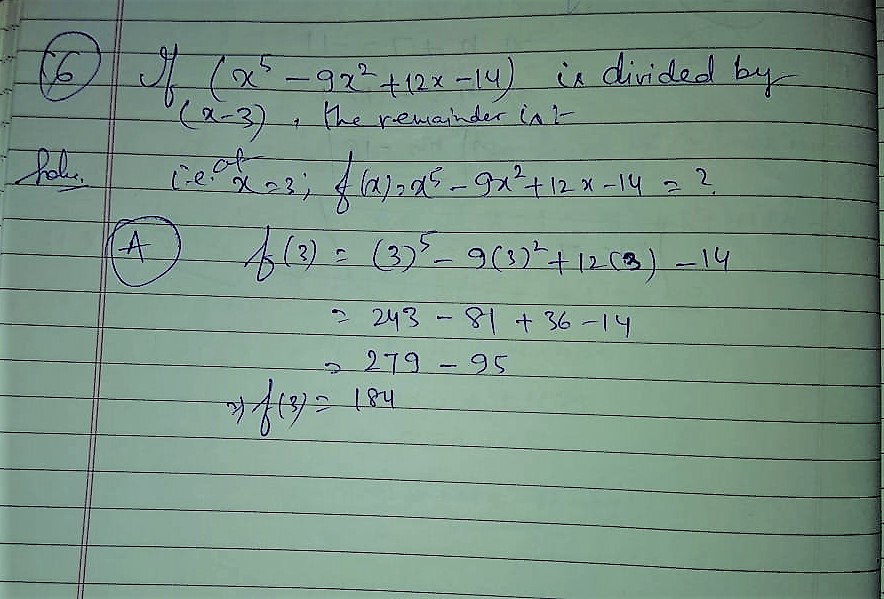 6 If (x⁵ - 9x² + 12x - 14) is divided by
(x-3), the remainder is :-
Soln. i.e. at x=3; f(x) = x⁵ - 9x² + 12x - 14 = ?
A f(3) = (3)⁵ - 9(3)² + 12(3) - 14
= 243 - 81 + 36 - 14
= 279 - 95
⇒ f(3) = 184